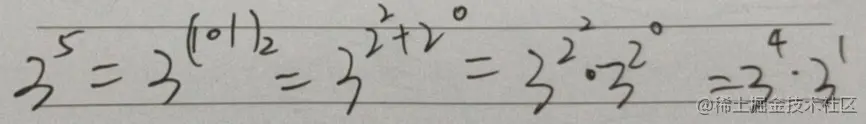 3^5 = 3^(101)_2 = 3^{2^2+2^0} = 3^{2^2}·3^{2^0} = 3^4·3^1
@稀土掘金技术社区